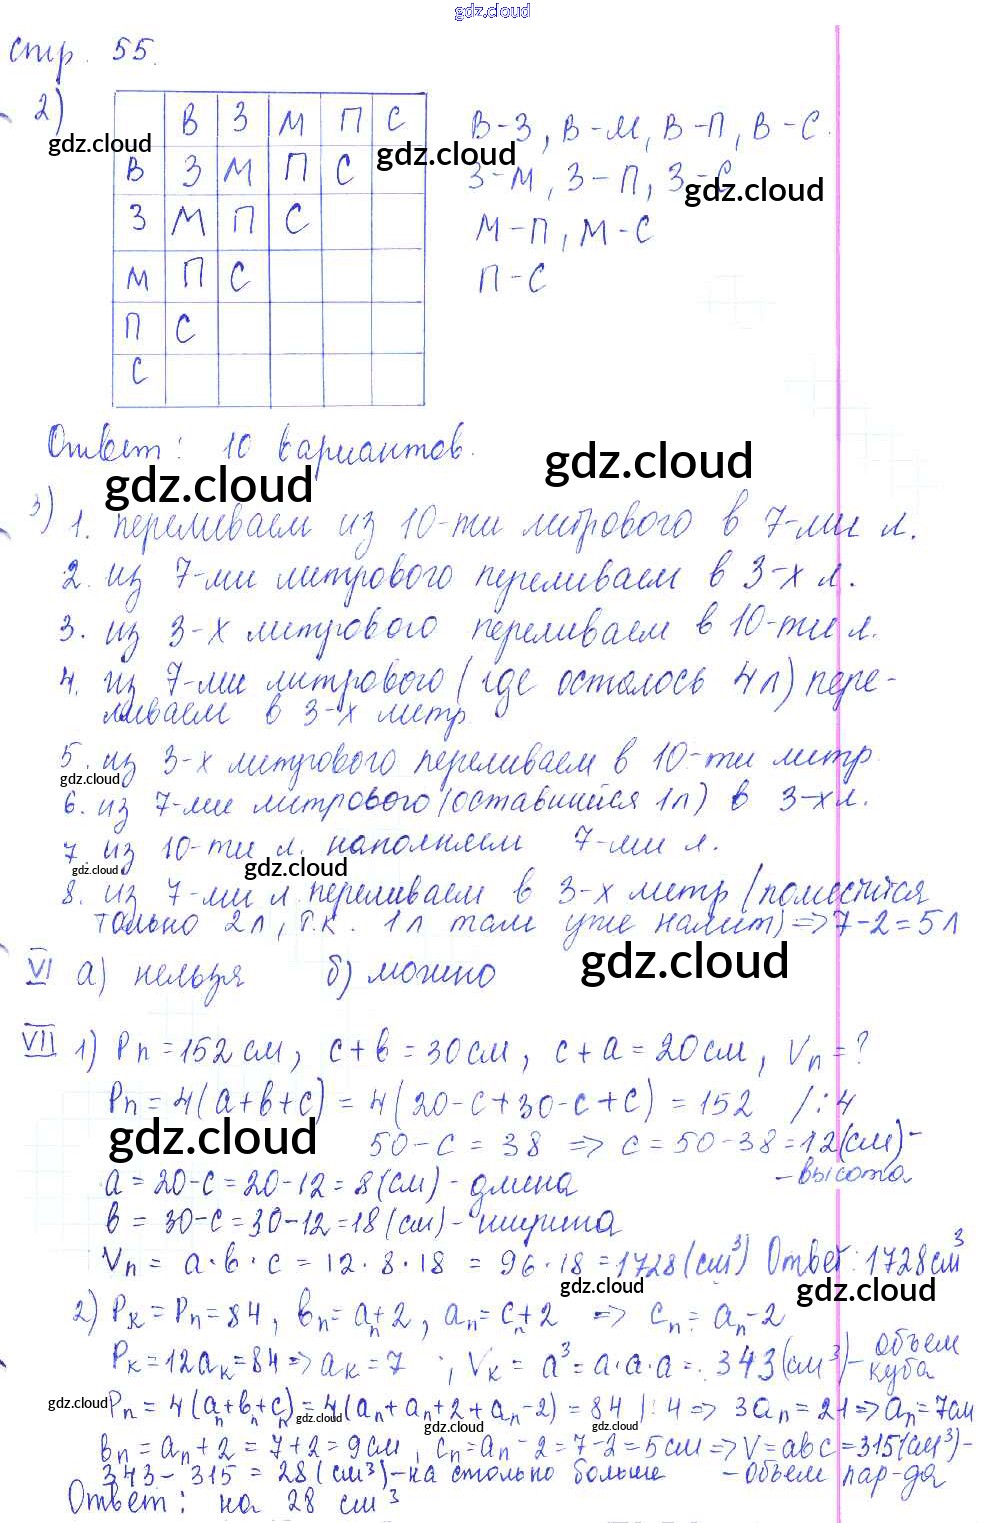 gdz.cloud
стр. 55.
2)
В З М П С
В З М П С
З М П С
М П С
П С
С
В-З, В-М, В-П, В-С.
З-М, З-П, З-С
М-П, М-С
П-С
gdz.cloud
gdz.cloud
gdz.cloud
Ответ: 10 вариантов.
gdz.cloud
gdz.cloud
3) 1. переливаем из 10-ти литрового в 7-ми л.
2. из 7-ми литрового переливаем в 3-х л.
3. из 3-х литрового переливаем в 10-ти л.
4. из 7-ми литрового (где осталось 4л) пере-
ливаем в 3-х литр
5. из 3-х литрового переливаем в 10-ти литр.
gdz.cloud
6. из 7-ми литрового (оставшийся 1л) в 3-х л.
7. из 10-ти л. наполняем 7-ми л.
gdz.cloud gdz.cloud
8. из 7-ми л переливаем в 3-х литр (поместится
только 2л, т.к. 1л там уже налит) => 7-2=5л
VI а) нельзя б) можно
gdz.cloud
VII 1) Pп = 152 см, c+в = 30см, c+a = 20см, Vп = ?
Pп = 4(a+в+c) = 4(20-c+30-c+c) = 152 /:4
gdz.cloud
50-c = 38 => c = 50-38 = 12(см)-
- высота
a = 20-c = 20-12 = 8(см) - длина
в = 30-c = 30-12 = 18(см) - ширина
Vп = a·в·c = 12·8·18 = 96·18 = 1728(см³) Ответ: 1728см³
gdz.cloud gdz.cloud
2) Pк = Pп = 84, вп = aп+2, aп = cп+2 => cп = aп-2
Pк = 12aк = 84 => aк = 7 ; Vк = a³ = a·a·a = 343(см³) - объем куба
gdz.cloud gdz.cloud gdz.cloud gdz.cloud
Pп = 4(aп+вп+cп) = 4(aп+aп+2+aп-2) = 84 /:4 => 3aп = 21 => aп = 7см
вп = aп+2 = 7+2 = 9см, cп = aп-2 = 7-2 = 5см => V = aвc = 315(см³)-
343-315 = 28(см³) - на столько больше - объем пар-да
Ответ: на 28 см³